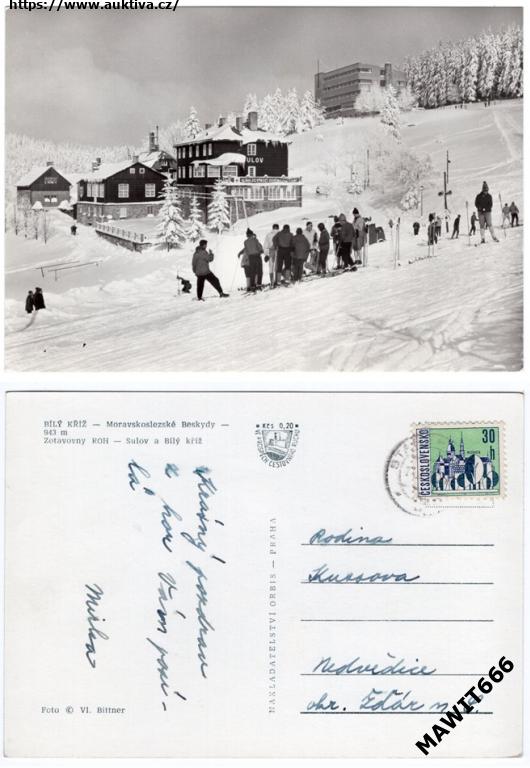 https://www.auktiva.cz/
SULOV
BÍLÝ KŘÍŽ — Moravskoslezské Beskydy —
943 m
Zotavovny ROH — Sulov a Bílý kříž
Kčs 0,20
VE PROSPĚCH CESTOVNÍHO RUCHU
ČESKOSLOVENSKO
30
h
Krásný pozdrav
z hor Vám posí-
lá
Mirka
NAKLADATELSTVÍ ORBIS — PRAHA
Rodina
Kussova
Nedvědice
okr. Žďár n. S.
Foto © Vl. Bittner
MAWIT666